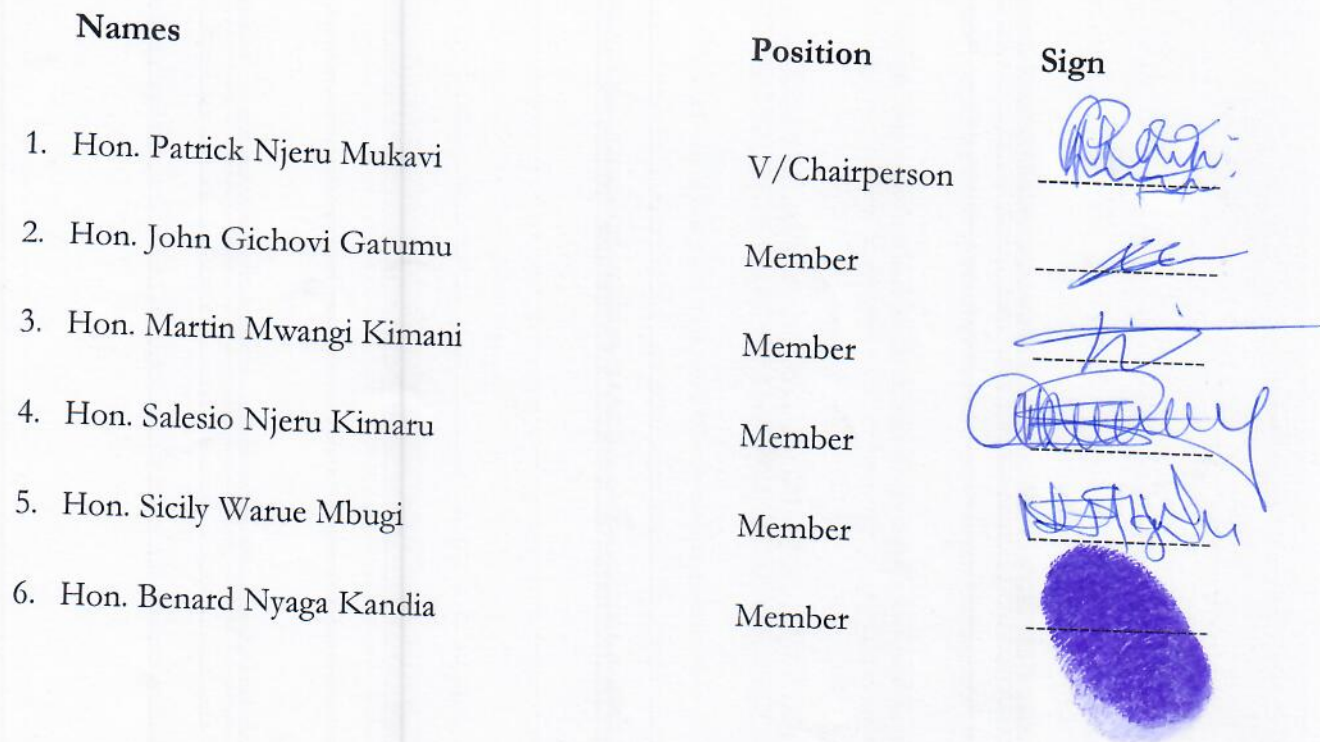 Names Position Sign
1. Hon. Patrick Njeru Mukavi V/Chairperson
2. Hon. John Gichovi Gatumu Member
3. Hon. Martin Mwangi Kimani Member
4. Hon. Salesio Njeru Kimaru Member
5. Hon. Sicily Warue Mbugi Member
6. Hon. Benard Nyaga Kandia Member